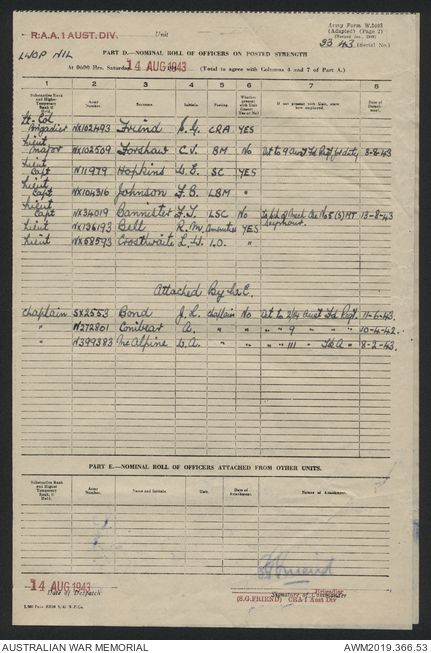 Army Form W.3008
(Adapted) (Page 2)
R.A.A. 1 AUST. DIV.
Unit
33/43 (Serial No.)
LWOP NIL
PART D.—NOMINAL ROLL OF OFFICERS ON POSTED STRENGTH
At 0600 Hrs. Saturday 14 AUG 1943 (Total to agree with Columns 4 and 7 of Part A.)
1 2 3 4 5 6 7 8
Substantive Rank and Higher Temporary Rank if Held. Army Number. Surname. Initials. Posting. Whether present with Unit (Insert Yes or No) If not present with Unit, state how employed. Date of Detachment.
Lt. Col
Brigadier NX102493 Friend S.G. CRA YES
Lieut
Major NX102509 Forshaw C.V. BM No Att to 9 Aust Fd Regt for duty 3-8-43
Lieut
Capt N11979 Hopkins W.E. SC YES
Lieut
Capt NX104316 Johnson F.B. LBM "
Lieut
Capt NX34019 Bannister F.J. LSC No 13-8-43
Seymour.
Lieut NX136193 Bell R.M. YES
Lieut NX68593 Crosthwaite L.W. I.O. "
Attached By L.C.
Chaplain SX2553 Bond J.L. Chaplain No Att to 2/14 Aust Fd Regt. 11-6-43.
" N272801 Conibear A. " " " " 9 " " " 10-4-42.
" N399383 McAlpine D.A. " " " " 111 " Tk A " 8-2-43.
PART E.—NOMINAL ROLL OF OFFICERS ATTACHED FROM OTHER UNITS.
Substantive Rank and Higher Temporary Rank, if Held. Army Number. Name and Initials. Unit. Date of Attachment. Nature of Attachment.
14 AUG 1943
Date of Despatch
Brigadier
Signature of Commander
(S.G. FRIEND) CRA 1 Aust Div
AUSTRALIAN WAR MEMORIAL
AWM2019.366.53